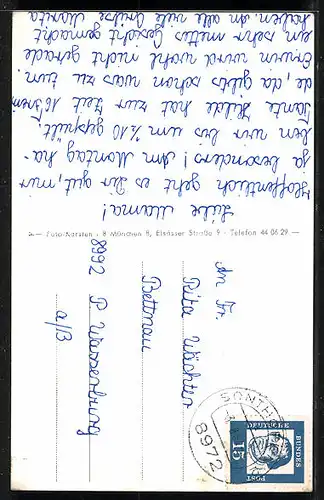 Liebe Mama!
Hoffentlich geht es Dir gut, mir
ja besonders! Am Montag ha-
ben wir bis um ½10 gespült.
Tante Hilde hat zur Zeit 16 Frem
de, da gibts schon was zu tun.
Erwin wird wohl nicht gerade
ein sehr nettes Gesicht gemacht
haben. An alle viele Grüße Marita
Foto-Karsten · 8 München 8, Elsässer Straße 9 · Telefon 44 06 29
An Fr.
Rita Wächter
Bettnau
8992 P. Wasserburg
a/B
SONTH
8972
15
DEUTSCHE
BUNDES
POST